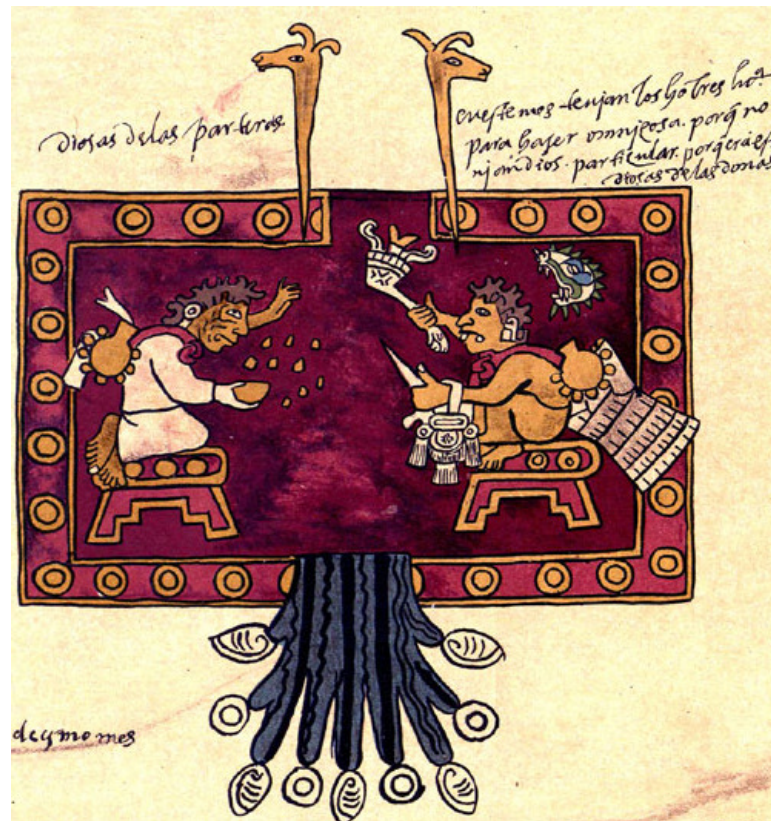 diosas de las parteras
cuestemos tenjan los hōbres
para haser omnjcosa. porq̄ no
njan dios. particular. porq̄
diosas de las donas